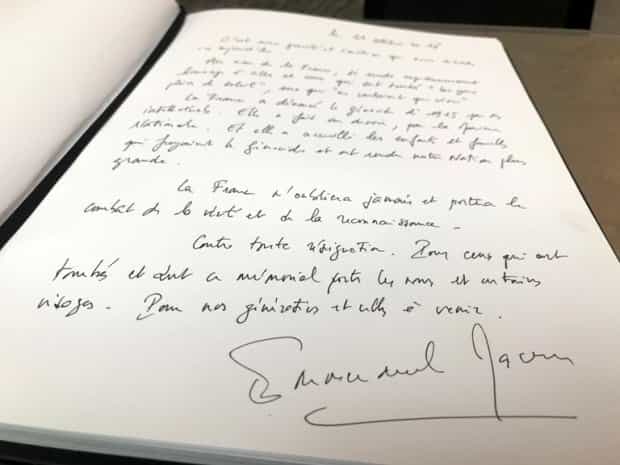 Le 11 octobre 2018
C'est avec gravité et que nous
aujourd'hui
Au nom de la France, je rends
hommage à celles et ceux qui sont tombés "les yeux
plein de soleil", ceux qui "en voulaient que vivre"
La France a dénoncé le génocide de 1915 par ses
intellectuels. Elle a fait son devoir, par la Marine
Nationale. Et elle a accueilli les enfants et familles
qui fuyaient le génocide et ont rendu notre Nation plus
grande.
La France n'oubliera jamais et portera le
combat de la vérité et de la reconnaissance.
Contre toute résignation. Pour ceux qui sont
tombés et dont ce mémorial porte les noms et certains
visages. Pour nos générations et celles à venir.
Emmanuel Macron